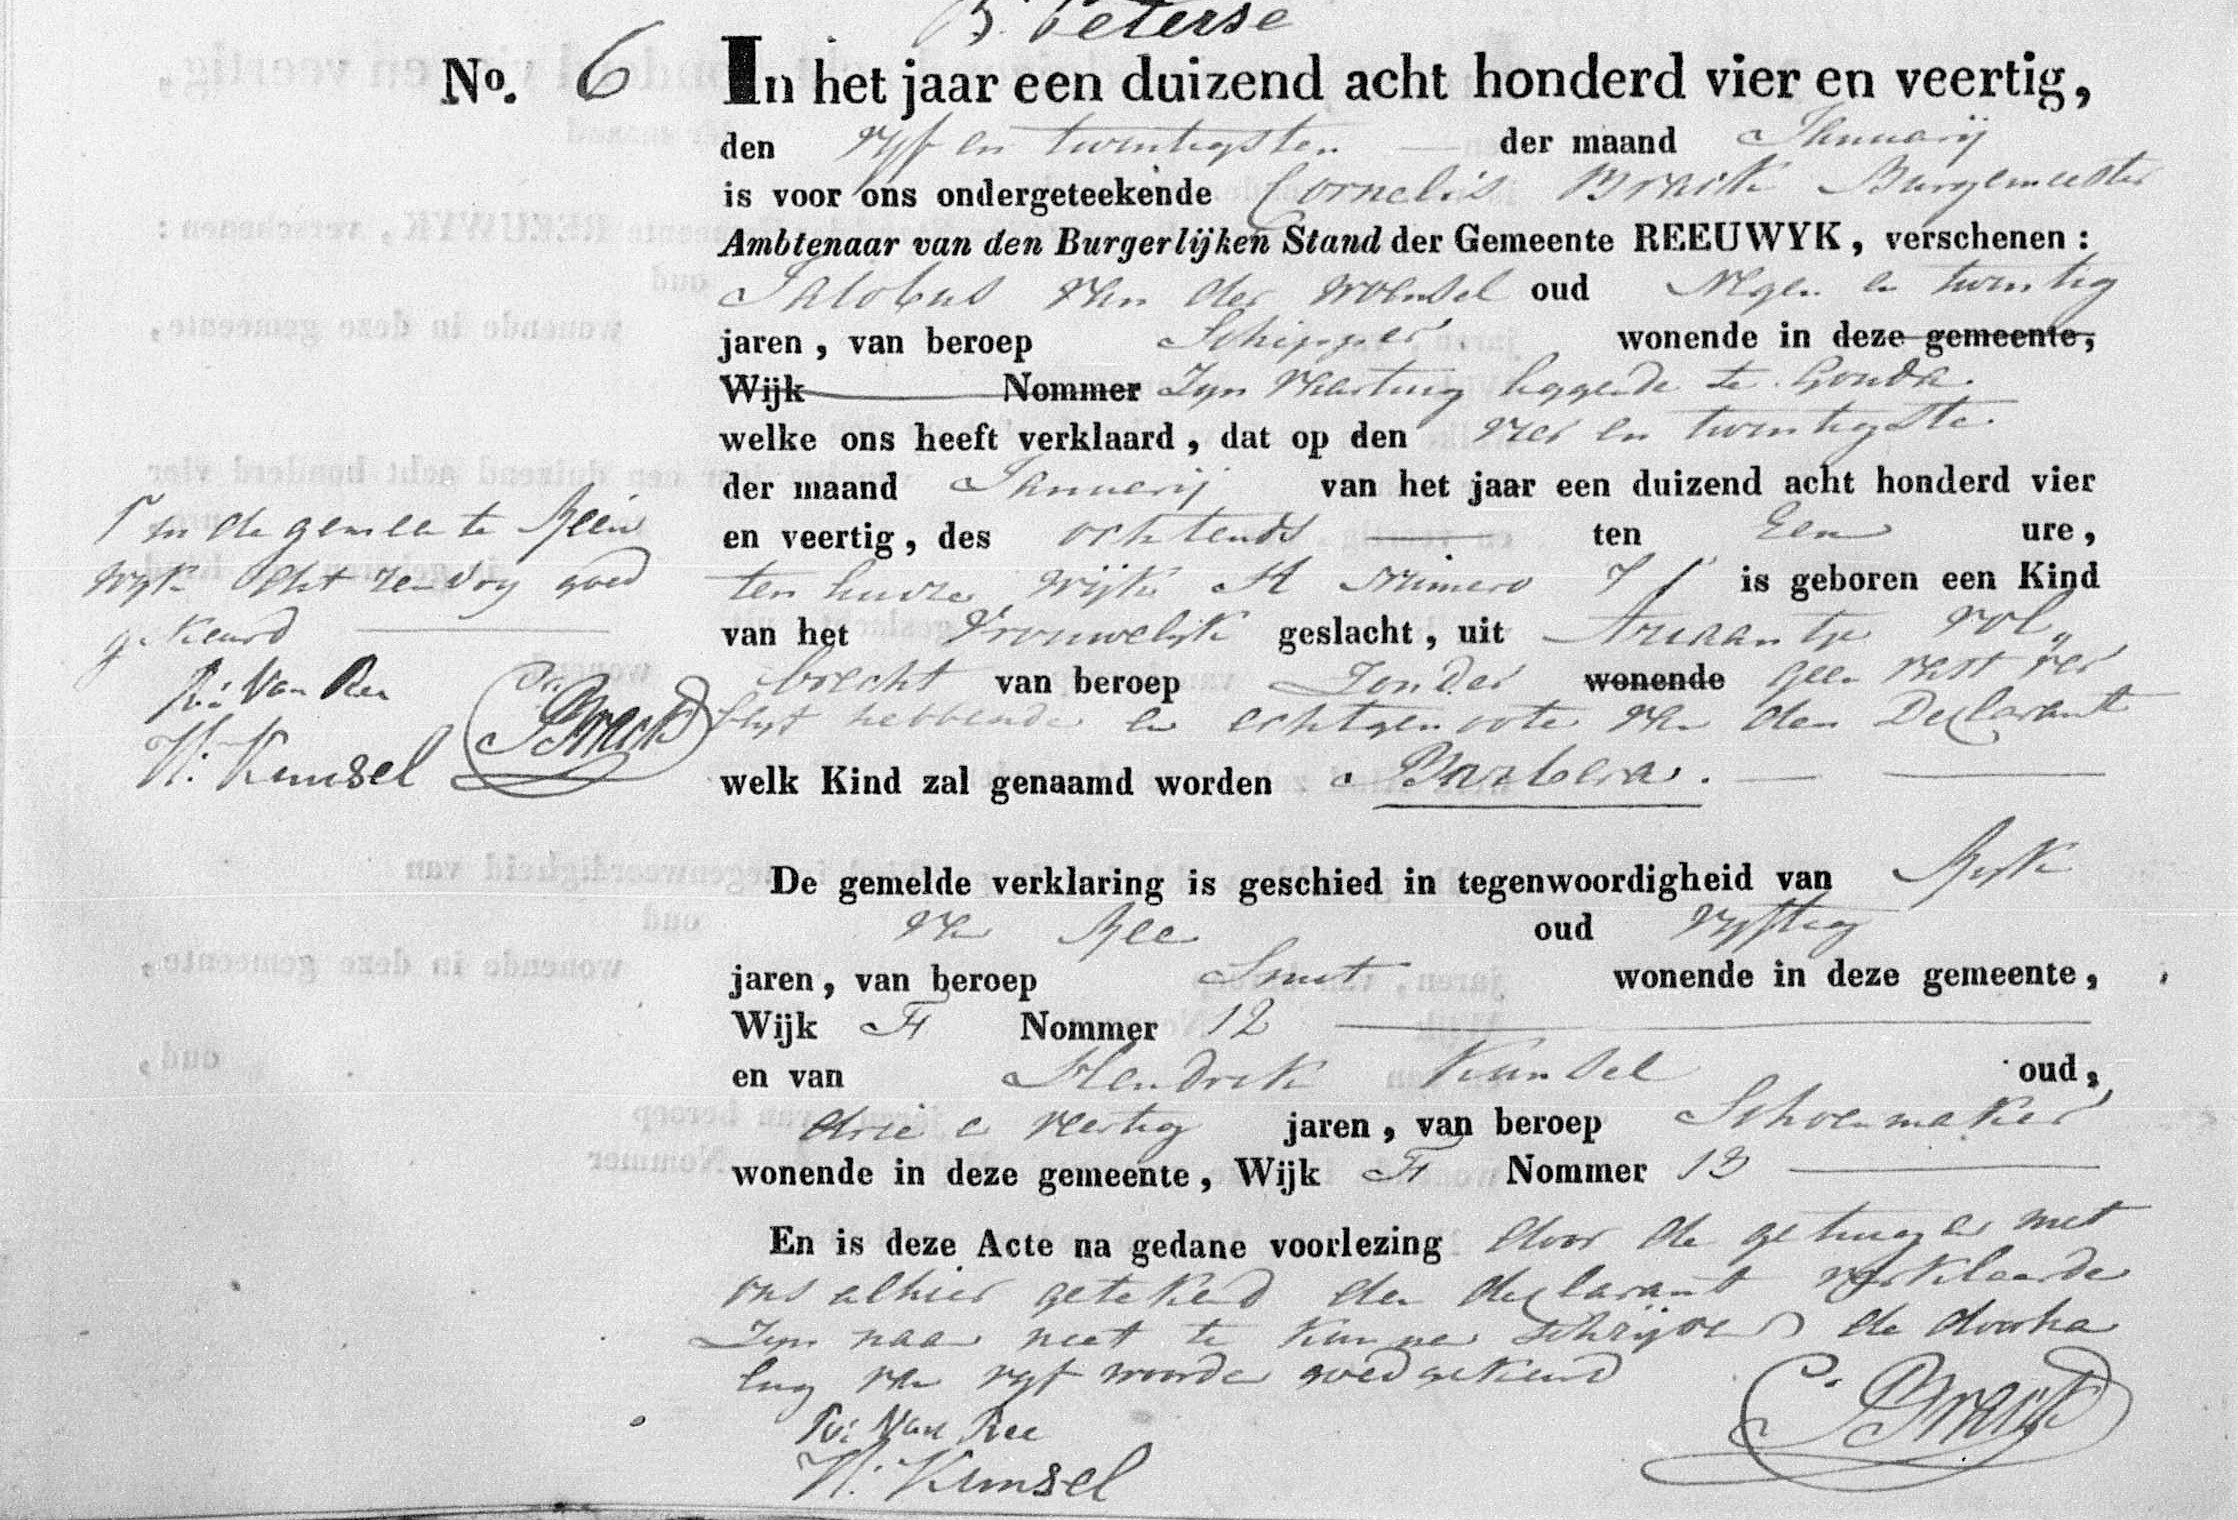 B. Peterse
No. 6 In het jaar een duizend acht honderd vier en veertig,
den vyf en twintigsten der maand Januarij
is voor ons ondergeteekende Cornelis Brack Burgemeester
Ambtenaar van den Burgerlijken Stand der Gemeente REEUWYK, verschenen:
Jacobus van der Woensel oud Negen en twintig
jaren, van beroep Schipper wonende in deze gemeente,
Wijk Nommer Zyn Vaartuig leggende te Gouda.
welke ons heeft verklaard, dat op den vier en twintigste
der maand Januarij van het jaar een duizend acht honderd vier
en veertig, des ochtends ten Een ure,
ten huize Wijk A Numero 7 is geboren een Kind
van het Vrouwelijk geslacht, uit Ariaantje Vol„
brecht van beroep Zonder wonende geen vast ver
blyf hebbende en echtgenoote van den Declarant
welk Kind zal genaamd worden Barbera.
Γ in de gemeente Reeu
wyk acht renvoy goed
gekeurd
R: Van Ree
H: Kunsel C Brack
De gemelde verklaring is geschied in tegenwoordigheid van Ryk
van Ree oud vyftig
jaren, van beroep Smit wonende in deze gemeente,
Wijk F Nommer 12
en van Hendrik Kunsel oud,
drie en veertig jaren, van beroep Schoenmaker
wonende in deze gemeente, Wijk F Nommer 13
En is deze Acte na gedane voorlezing door de getuigen met
ons alhier getekend den declarant verklaarde
Zyn naam niet te kunnen schrijven de doorha
ling van vyf woorden goedgekeurd
R: Van Ree
H: Kunsel C. Brack